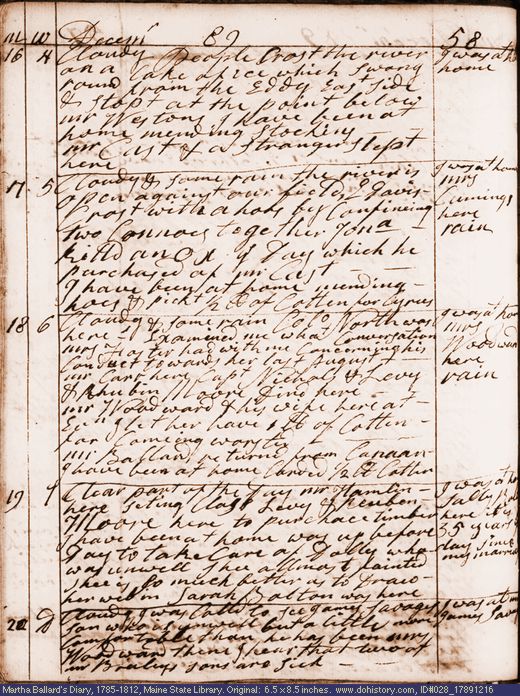 m w Decem 89 58
16 4 Cloudy People Crost the river I was at ho
on a Cake of ice which Swong home
round from the Eddy East Side
& stopt at the point below
mr Westons I have been at
home mending Stockins
mr Cust & a Stranger Slept
here
17 5 Cloudy & some rain the river is I was at home
opan against our field Davis mrs
Crost with a hors by Confineing Cumings
two Connoes together Jona here
killd an Ox of Jay which he rain
purchased of mr Cust
I have been at home mending
hoes & pickt 1/2 lb of Cotten for Cyrus
18 6 Cloudy & some rain Colo North was I was at ho
here Examined me what Conversation mrs
mrs Foster had with me Concerning his Woodward
Conduct towards her last August here
mr Carr here Capt Nichols & Levy rain
& Rhubin Moore Dind here
mr Woodward & his wife here at
Evng let her have 1 lb of Cotten
for Combing worsted
mr Ballard returned from Canaan
I have been at home Carded 1/2 lb Cotten
19 7 Clear part of the Day mr Hamlin I was at ho
here Seting Clock Levy & Reuben Sally
Moore here to purchace timber here it is
I have been at home was up before 35 years
Day to take Care of Dolly who day since
was unwell She allmost fainted my marriage
shee is so much better as to Draw
her web in Sarah Bolton was here
20 D Cloudy I was Calld to see James Savages I was at mr
son who is unwell but a little more James Savag
Comfortable than he has been mrs
Woodward there I hear that two of
mr sons are Sick
Martha Ballard's Diary, 1785-1812, Maine State Library. Original: 6.5 x 8.5 inches. www.dohistory.com, ID#028_17891216